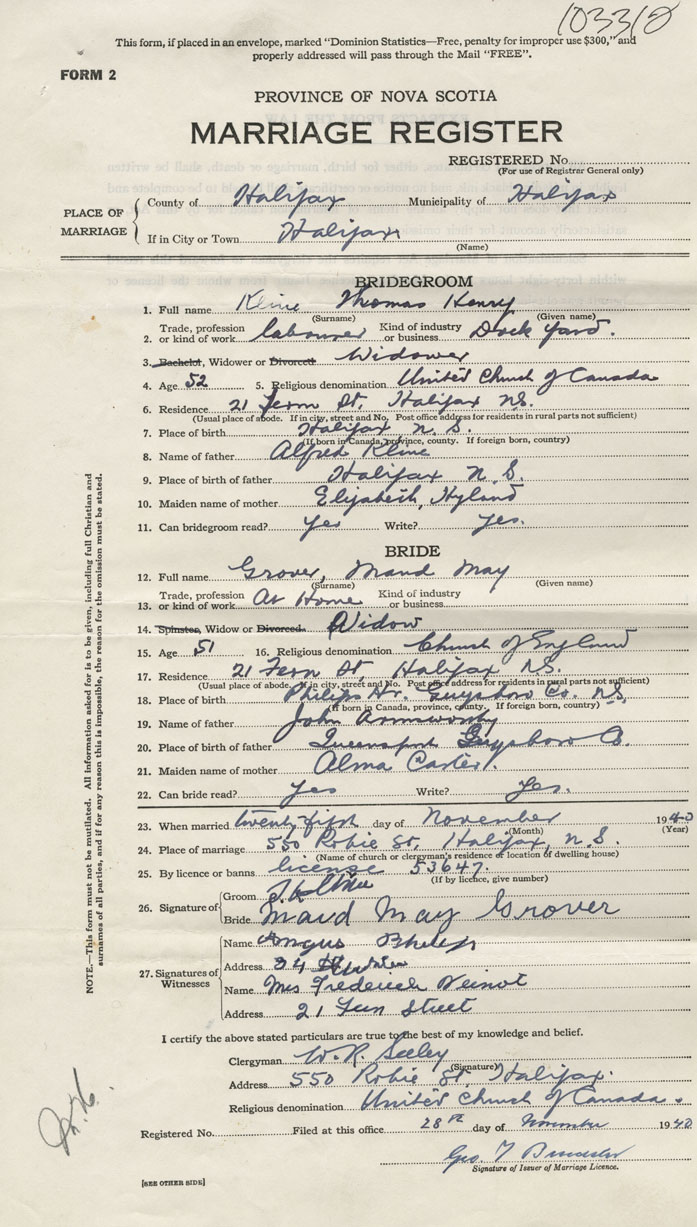 103310
This form, if placed in an envelope, marked "Dominion Statistics—Free, penalty for improper use $300," and
properly addressed will pass through the Mail "FREE".
FORM 2
PROVINCE OF NOVA SCOTIA
MARRIAGE REGISTER
REGISTERED No.
(For use of Registrar General only)
PLACE OF MARRIAGE
County of Halifax Municipality of Halifax
If in City or Town Halifax
(Name)
BRIDEGROOM
1. Full name Kline Thomas Henry
(Surname) (Given name)
2. Trade, profession or kind of work labourer Kind of industry or business Dock Yard.
3. Bachelor, Widower or Divorced Widower
4. Age 52 5. Religious denomination United Church of Canada
6. Residence 21 Fern St, Halifax N.S.
(Usual place of abode. If in city, street and No. Post office address for residents in rural parts not sufficient)
7. Place of birth Halifax N. S.
(If born in Canada, province, county. If foreign born, country)
8. Name of father Alfred Kline
9. Place of birth of father Halifax N. S.
10. Maiden name of mother Elizabeth, Hyland
11. Can bridegroom read? yes Write? yes.
BRIDE
12. Full name Grover, Maud May
(Surname) (Given name)
13. Trade, profession or kind of work At Home Kind of industry or business
14. Spinster, Widow or Divorced Widow
15. Age 51 16. Religious denomination Church of England
17. Residence 21 Fern St Halifax N.S.
(Usual place of abode. If in city, street and No. Post office address for residents in rural parts not sufficient)
18. Place of birth Philips Hr. Guysboro Co. N.S.
(If born in Canada, province, county. If foreign born, country)
19. Name of father John
20. Place of birth of father Queensport Guysboro Co.
21. Maiden name of mother Alma Carter.
22. Can bride read? yes Write? yes.
23. When married twenty fifth day of November 1940
(Month) (Year)
24. Place of marriage 550 Robie St, Halifax, N.S.
(Name of church or clergyman's residence or location of dwelling house)
25. By licence or banns license 53647
(If by licence, give number)
26. Signature of
Groom
Bride Maud May Grover
27. Signatures of Witnesses
Name Angus Philips
Address 24
Name Mrs Frederick Veinot
Address 21 Fern Street
I certify the above stated particulars are true to the best of my knowledge and belief.
Clergyman W. R. Seeley
(Signature)
Address 550 Robie St. Halifax.
Religious denomination United Church of Canada.
Registered No. Filed at this office 28th day of November 1940
Geo. T
Signature of Issuer of Marriage Licence.
[SEE OTHER SIDE]
NOTE.—This form must not be mutilated. All information asked for is to be given, including full Christian and
surnames of all parties, and if for any reason this is impossible, the reason for the omission must be stated.